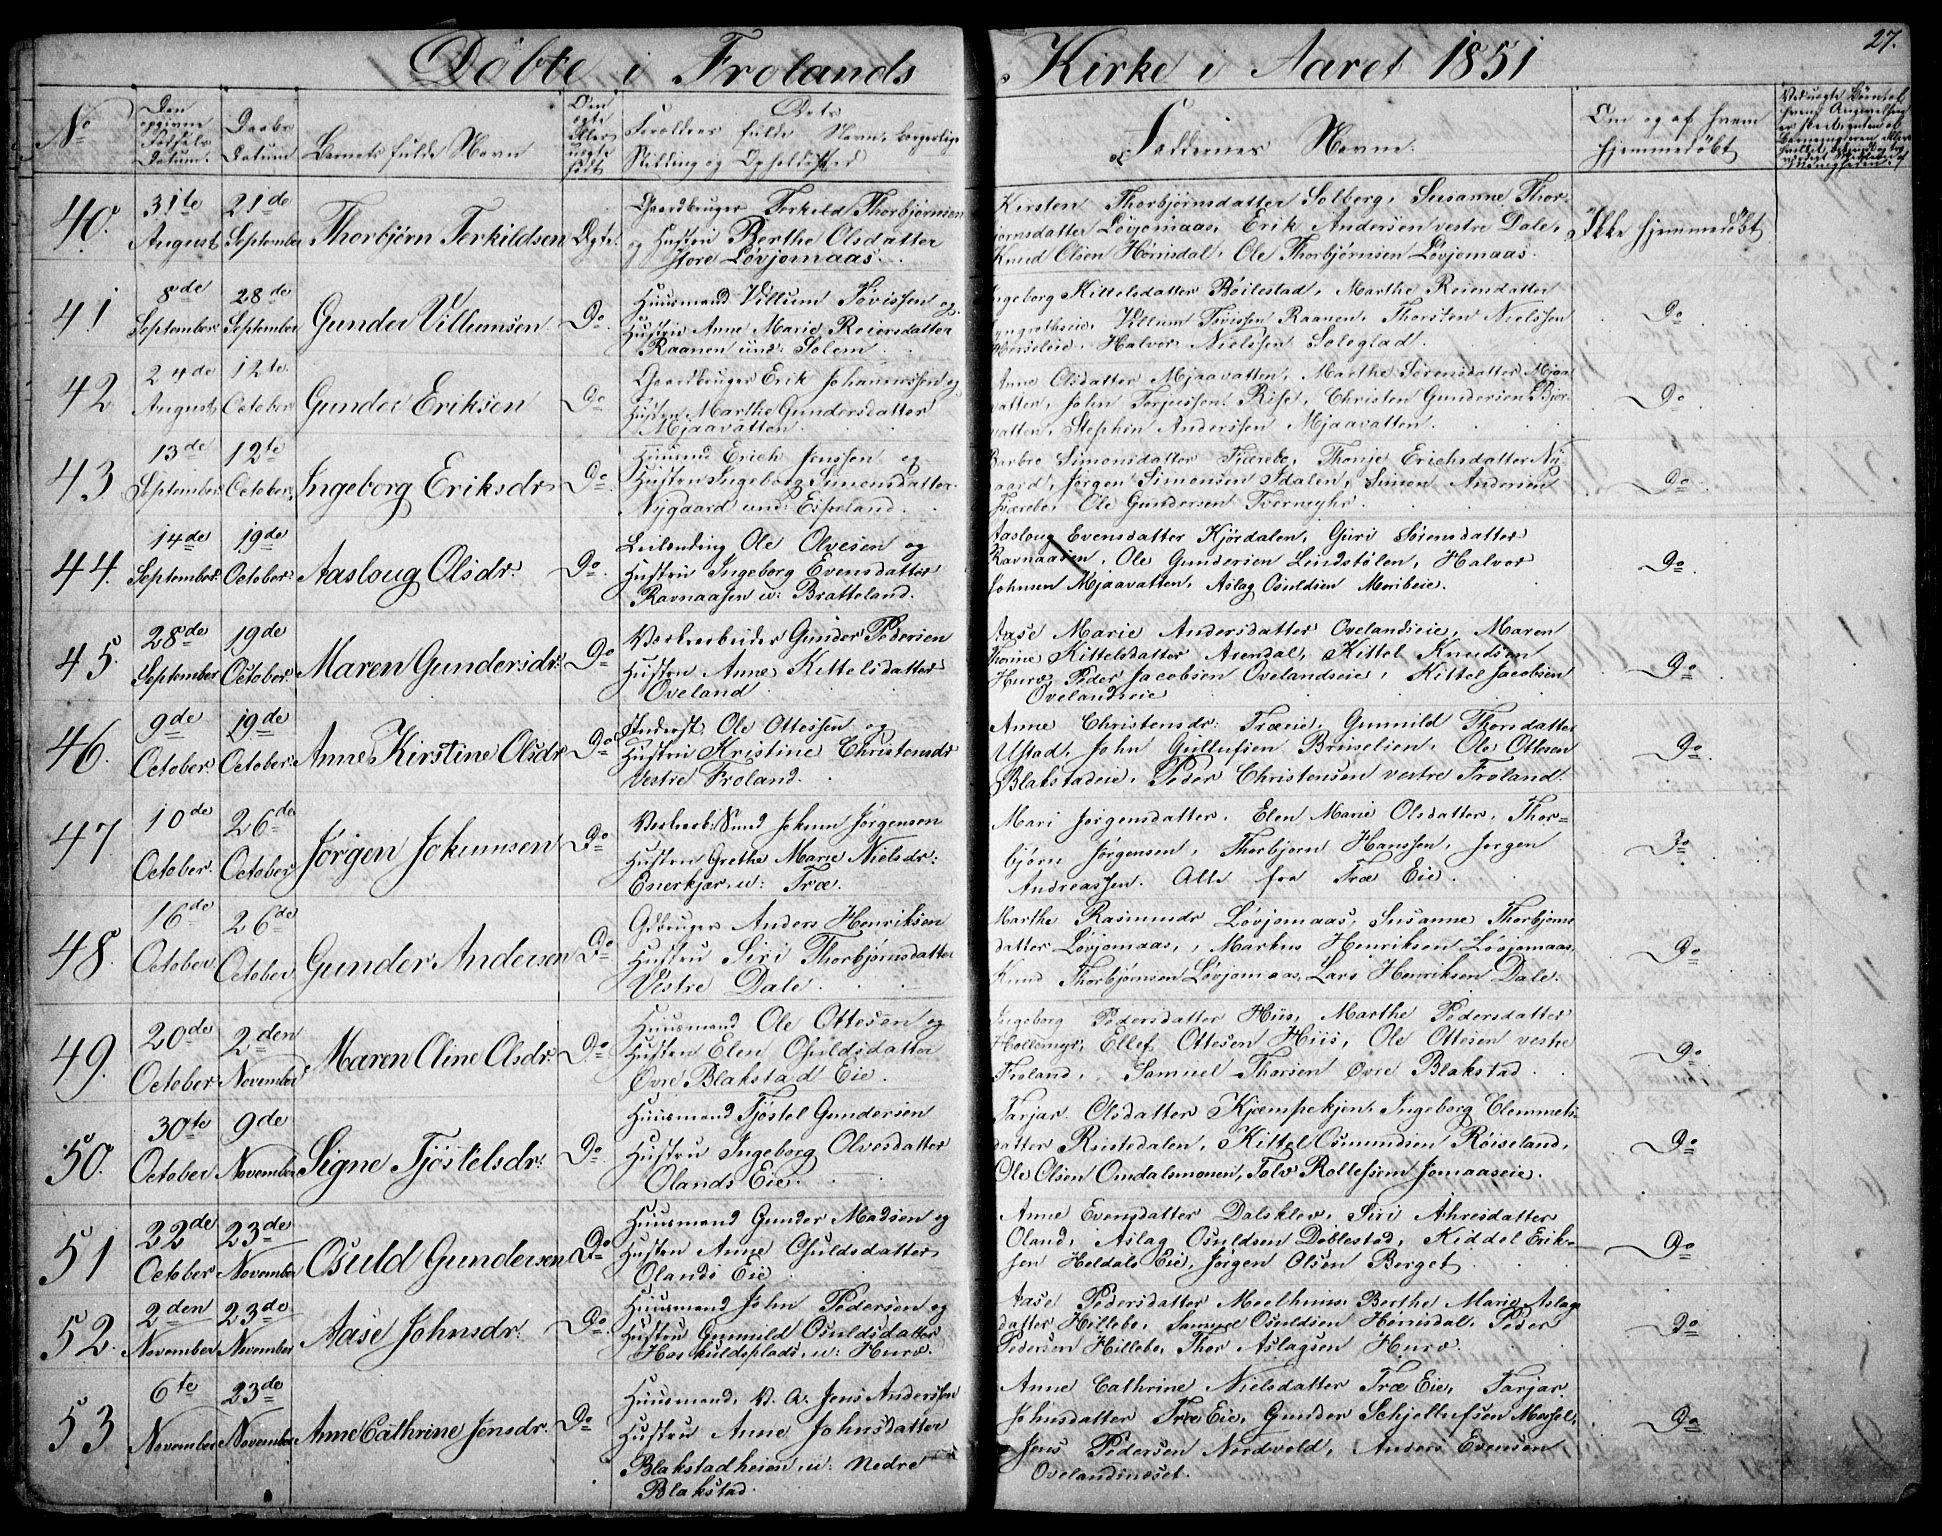 Döbte i Frolands Kirke i Aaret 1851
27.
No
Den opgivne Födsels Datum.
Daabs Datum
Barnets fulde Navn
Om ægte eller uægte födt
Dets Forældres fulde Navn, borgerlige Stilling og Opholdssted
Faddernes Navne.
Om og af hvem hjemmedöbt
40.
31te August
21de September
Thorbjørn Terkildsen
Ægte.
Gaardbruger Terkild Thorbjørnsen
og Hustru Berthe Olsdatter
store Løvjomaas.
Kirsten Thorbjørnsdatter Solberg, Susanne Thor-
bjørnsdatter Løvjomaas, Erik Andersen vestre Dale,
Knud Olsen Hørnisdal, Ole Thorbjørnsen Løvjomaas.
Ikke hjemmedöbt
41
8de September
28de September
Gunder Villumsen
Do
Huusmand Villum Tovissen og
Hustru Anne Marie Reiersdatter
Raanen und: Solem.
Ingeborg Kittelsdatter Böilestad, Marthe Reiersdatter
Villum Tovissen Raanen, Thorsten Nielssen
Halvor Nielssen Soleglad.
Do
42
24de August
12te October
Gunder Eriksen
Do
Gaardbruger Erik Johannessen og
Hustru Marthe Gundersdatter
Mjaavatten.
Anne Olsdatter Mjaavatten, Marthe Sörensdatter Mjaa-
vatten, John Terjussen Rise, Christen Gundersen Bjor-
vatten, Stephen Anderssen Mjaavatten.
Do
43
13de September
12te October
Ingeborg Eriksdr
Do
Huusmd Erich Jenssen og
Hustru Ingeborg Simonsdatter
Nygaard und: Espeland.
Barbro Simonsdatter Tværebo, Thonje Erichsdatter Ny-
gaard, Jörgen Simonsen Idalen, Simon Andersen
Tværebo, Ole Gundersen Tvermyhr.
Do
44.
14de September
19de October
Aasloug Olsdr.
Do
Leilending Ole Olvesen og
Hustru Ingeborg Evensdatter
Ravnaasen u: Bratteland.
Aasloug Evensdatter Kjördalen, Guri Sörensdatter
Ravnaasen, Ole Gundersen Lindstølen, Halvor
Johnsen Mjaavatten, Aslag Osuldsen Moribeie.
Do
45.
28de September
19de October
Maren Gundersdr.
Do
Verksarbeider Gunder Pedersen
Hustru Anne Kittelsdatter
Oveland
Aase Marie Andersdatter Ovelandseie, Maren
Thorine Kittelsdatter Arendal, Kittel Knudsen
Hurv, Peder Jacobsen Ovelandseie, Kittel Jacobsen
Ovelandseie
Do
46.
9de October
19de October
Anne Kirstine Olsdr
Do
Understr. Ole Ottessen og
Hustru Kristine Christensdr
Vestre Froland.
Anne Christensdr: Træeie, Gunnild Thorsdatter
Ustad, John Gullufsen Bruselien, Ole Ottesen
Blakstadeie, Peder Christensen vestre Froland.
Do
47
10de October
26de October
Jörgen Jokumsen
Do
Verksarb: Smd Jokum Jörgensen
Hustru Grethe Marie Nielsdr:
u: Træ.
Mari Jörgensdatter, Elen Marie Olsdatter, Thor-
bjørn Jørgensen, Thorbjørn Hanssen, Jørgen
Andreassen. Alle fra Træ Eie.
Do
48.
16de October
26de October
Gunder Andersen
Do
Gdbruger Anders Henriksen
Hustru Siri Thorbjørnsdatter
Vestre Dale.
Marthe Rasmusdr Løvjomaas, Susanne Thorbjørns-
datter Løvjomaas, Markus Henriksen Løvjomaas,
Knud Thorbjørnsen Løvjomaas, Lars Henriksen Dale.
Do
49.
20de October
2den November
Maren Oline Olsdr.
Do
Huusmand Ole Ottesen og
Hustru Elen Osuldsdatter
Øvre Blakstad Eie.
Ingeborg Pedersdatter Hiis, Marthe Pedersdatter
Hollemyr, Ellef Ottesen Hiis, Ole Ottesen vestre
Froland, Samuel Thorsen Øvre Blakstad.
Do
50.
30te October
9de November
Signe Tjöstelsdr.
Do
Huusmand Tjöstel Gundersen
Hustru Ingeborg Olvesdatter
Olands Eie.
Tarjar Olsdatter Kjæmpekjen, Ingeborg Clemmets-
datter Rustedalen, Kittel Osmundsen Røiseland,
Ole Olsen Omdalsmonen, Tolv Rollefsen Jomaaseie.
Do
51
22de October
23de November
Osuld Gundersen
Do
Huusmand Gunder Madsen og
Hustru Anne Osuldsdatter
Olands Eie
Anne Evensdatter Dalsklev, Siri Ahresdatter
Oland, Aslag Osuldsen Döblestad, Kiddel Erik-
sen Heldals Eie, Jørgen Olsen Berget.
Do
52.
2den November
23de November
Aase Johnsdr.
Do
Huusmand John Pedersen og
Hustru Gunnild Osuldsdatter
Haskuldsplads u: Hurv.
Aase Pedersdatter Moelhuus, Berthe Marie Aslag-
datter Hillebo, Samuel Osuldsen Hørnisdal, Peder
Pedersen Hillebo, Thor Aslagsen Hurv.
Do
53
6te November
23de November
Anne Cathrine Jensdr.
Do
Huusmand, V. A. Jens Anderssen
Hustru Anne Johnsdatter
Blakstadheien u: Nedre
Blakstad.
Anne Cathrine Nielsdatter Træ Eie, Tarjar
Johnsdatter Træ Eie, Gunder Schjellufsen Messel,
Jens Pedersen Nordvold, Anders Evensen
Ovelandsneset.
Do